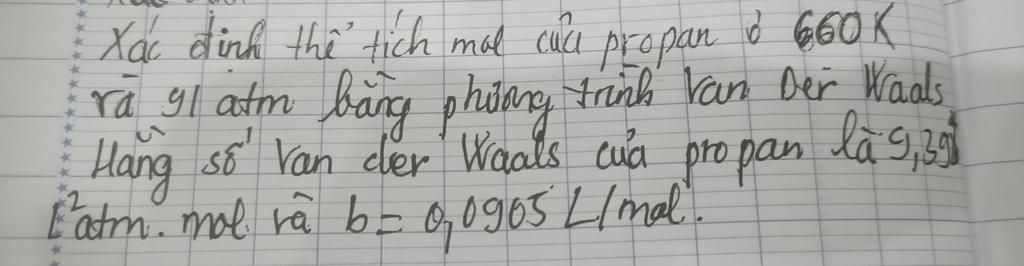 Xác định thể tích mol của propan ở 660K
và 91 atm bằng phương trình Van Der Waals
Hằng số Van der Waals của propan là 9,39
L²atm. mol và b = 0,0905 L/mol.